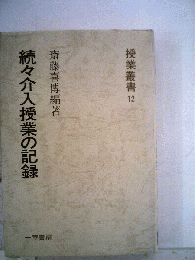 授業叢書
12
斎藤喜博編著
続々介入授業の記録
一莖書房